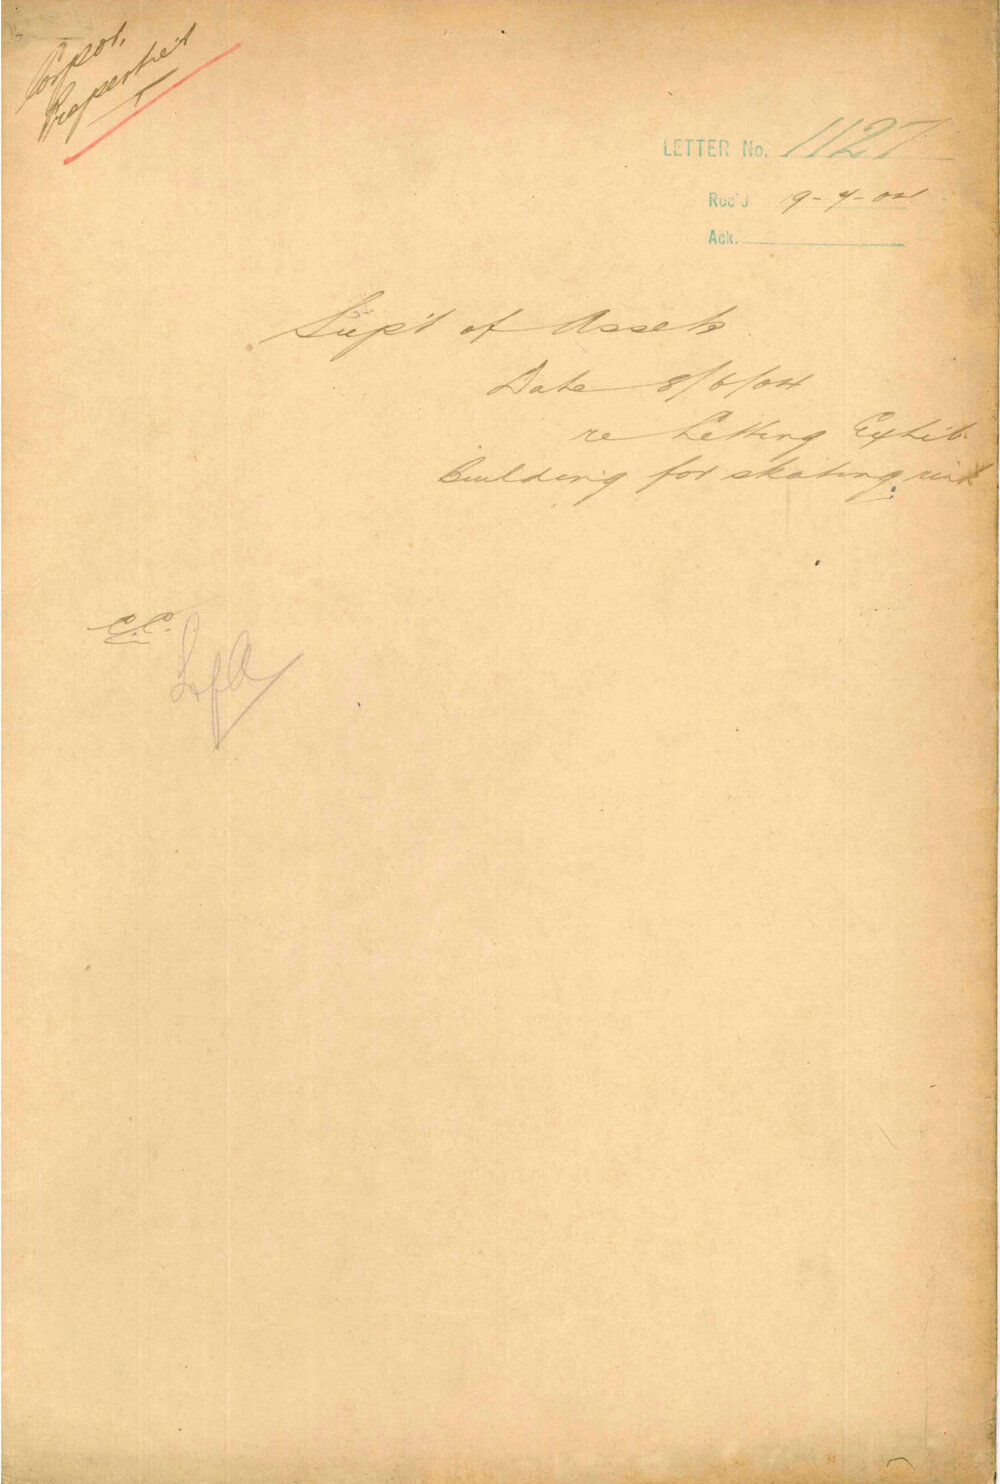 Corpor.
Properties
LETTER No. 1127
Rec'd 9-7-04
Ack.
Sup't of Assets
Date 8/6/04
re Letting Exhib
Building for skating rink
C.C.
S of A